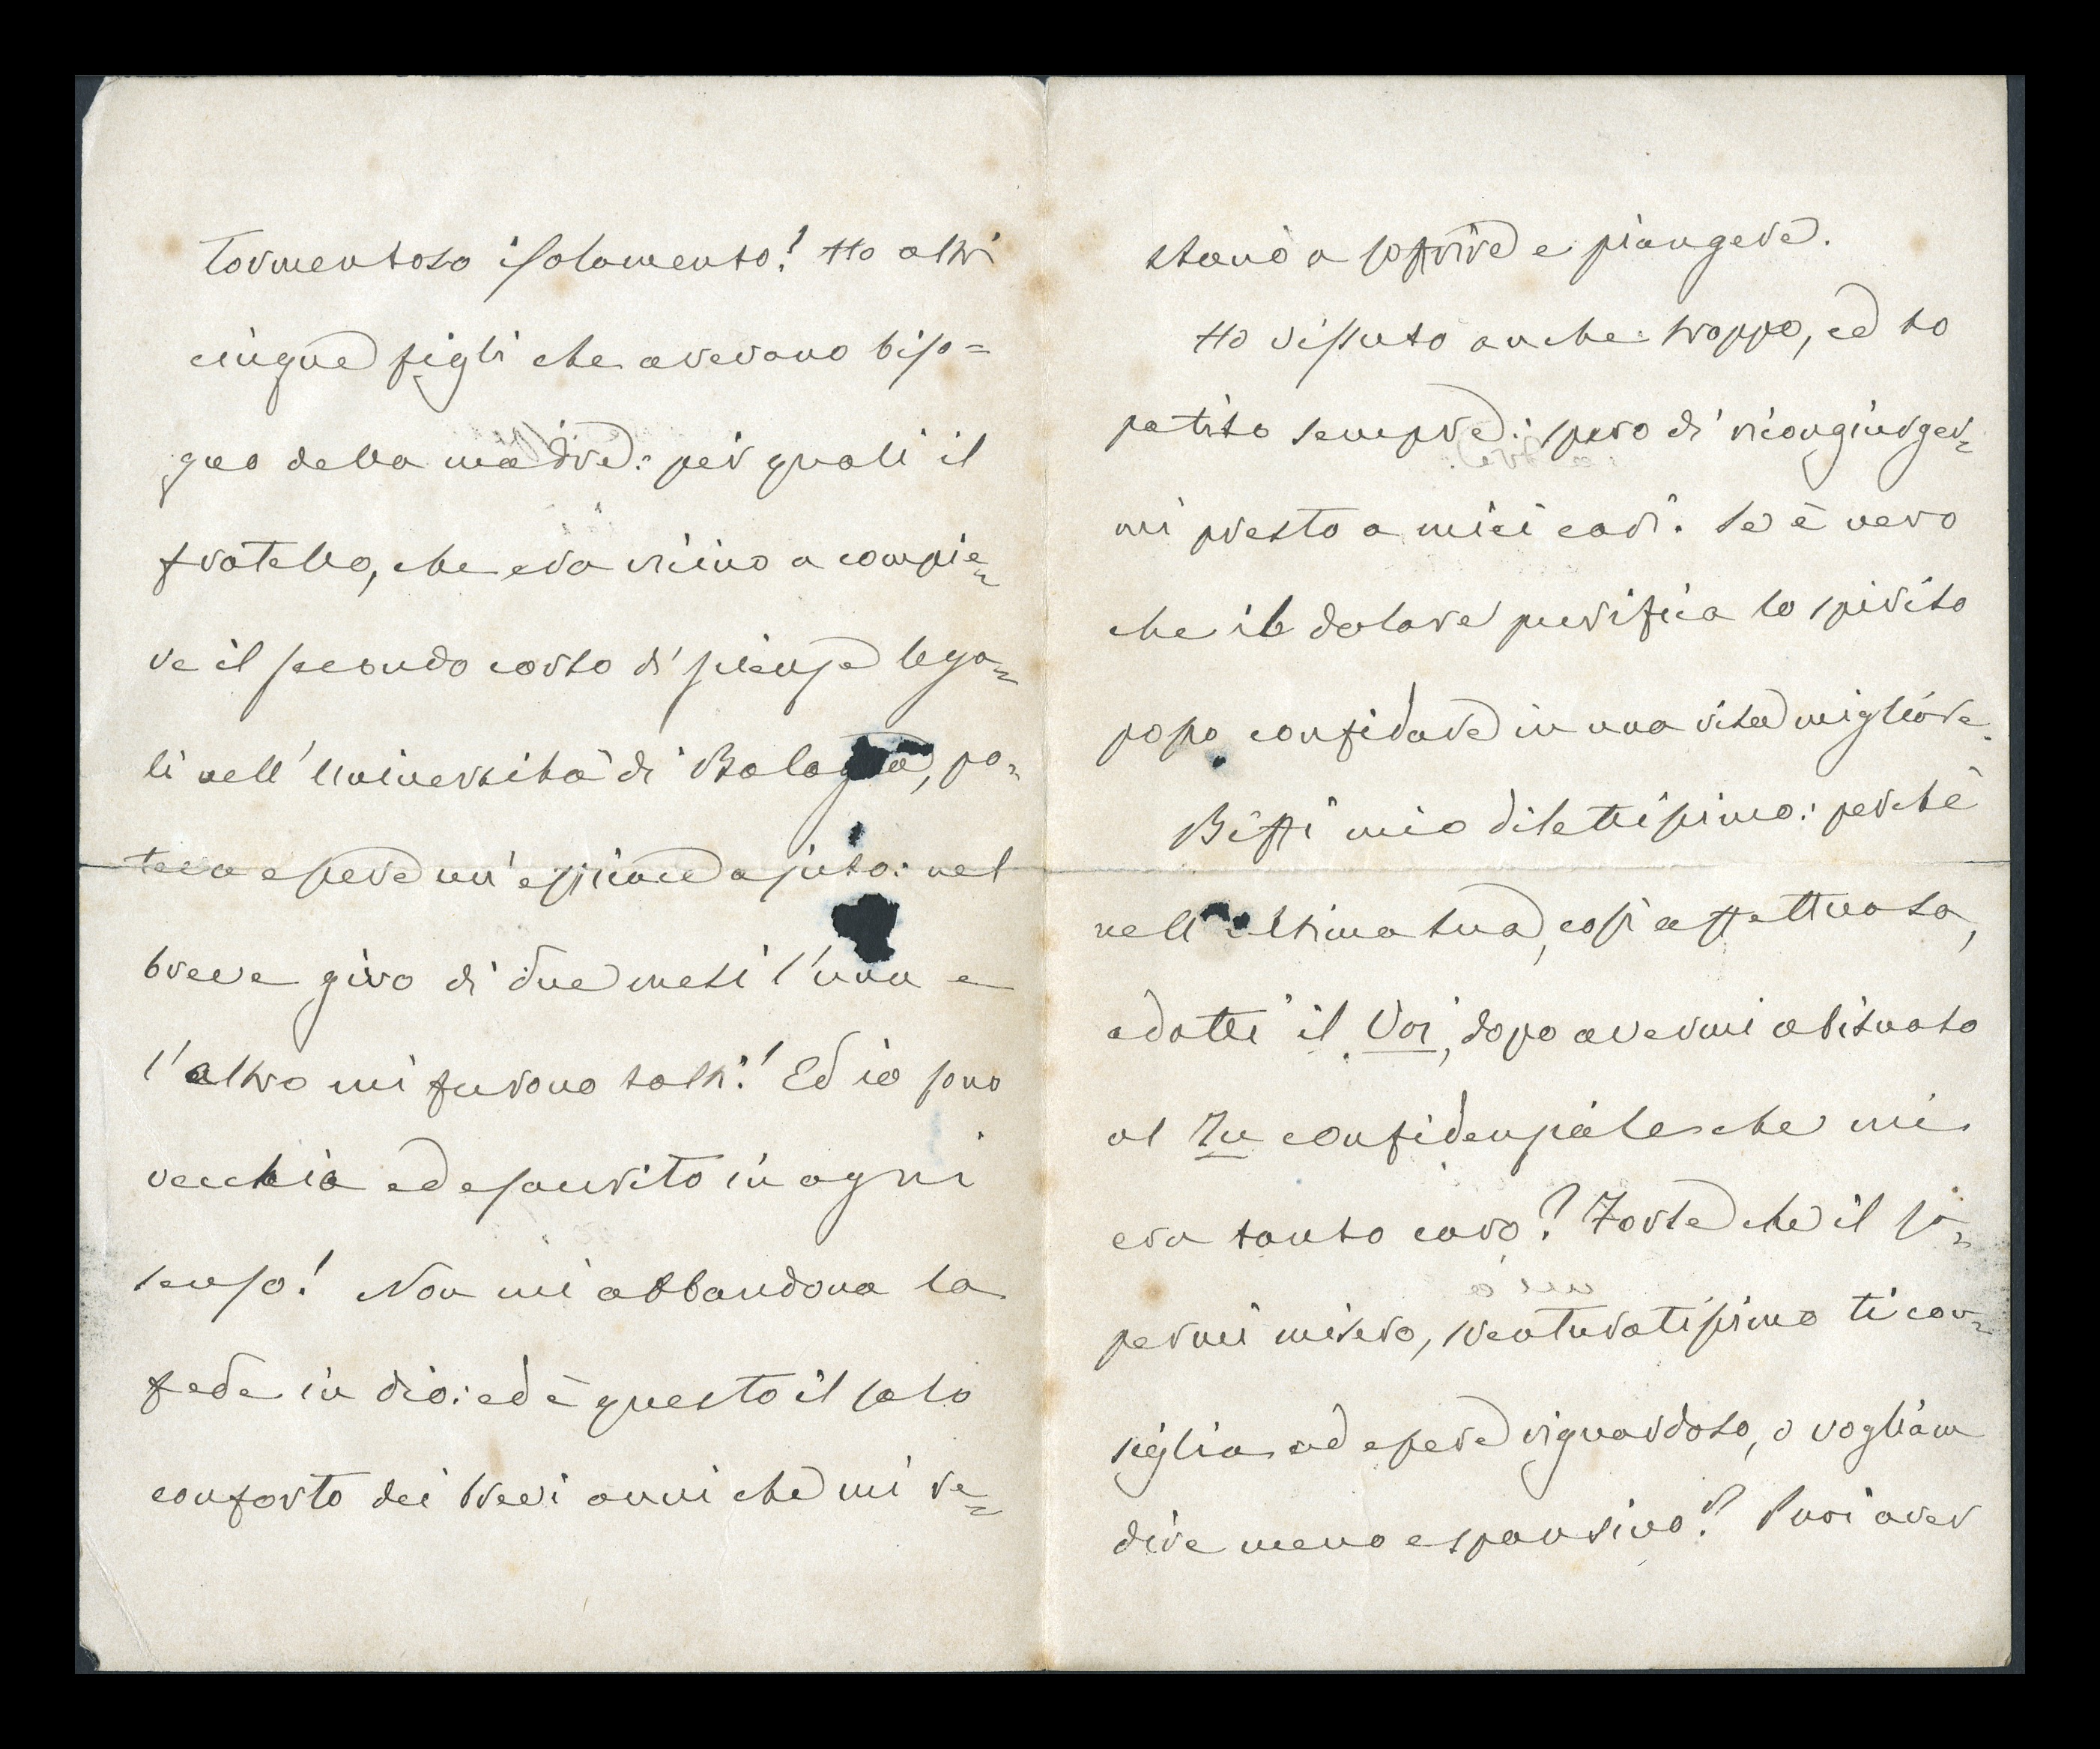 tormentoso isolamento! Ho altri
cinque figli che avevano biso=
gno della madre: pei quali il
fratello, che era vicino a compie=
re il secondo corso di scienze lega=
li nell'Università di Bologna, po=
teva essere un'efficace ajuto: nel
breve giro di due mesi l'una e
l'altro mi furono tolti! Ed io sono
vecchio ed esaurito in ogni
senso! Non mi abbandona la
fede in dio: ed è questo il solo
conforto dei brevi anni che mi re=
stano a soffrire e piangere.
Ho vissuto anche troppo, ed ho
patito sempre: spero di ricongiunger=
mi presto a miei cari. Se è vero
che il dolore purifica lo spirito
posso confidare in una vita migliore.
Biffi mio dilettissimo: perchè
nell'ultima tua, così affettuosa,
adotti il Voi, dopo avermi abituato
al Tu confidenziale che mi
era tanto caro? Forse che il sa=
permi misero, sventuratissimo ti con=
siglia ad essere riguardoso, o vogliam
dire meno espansivo? Puoi aver